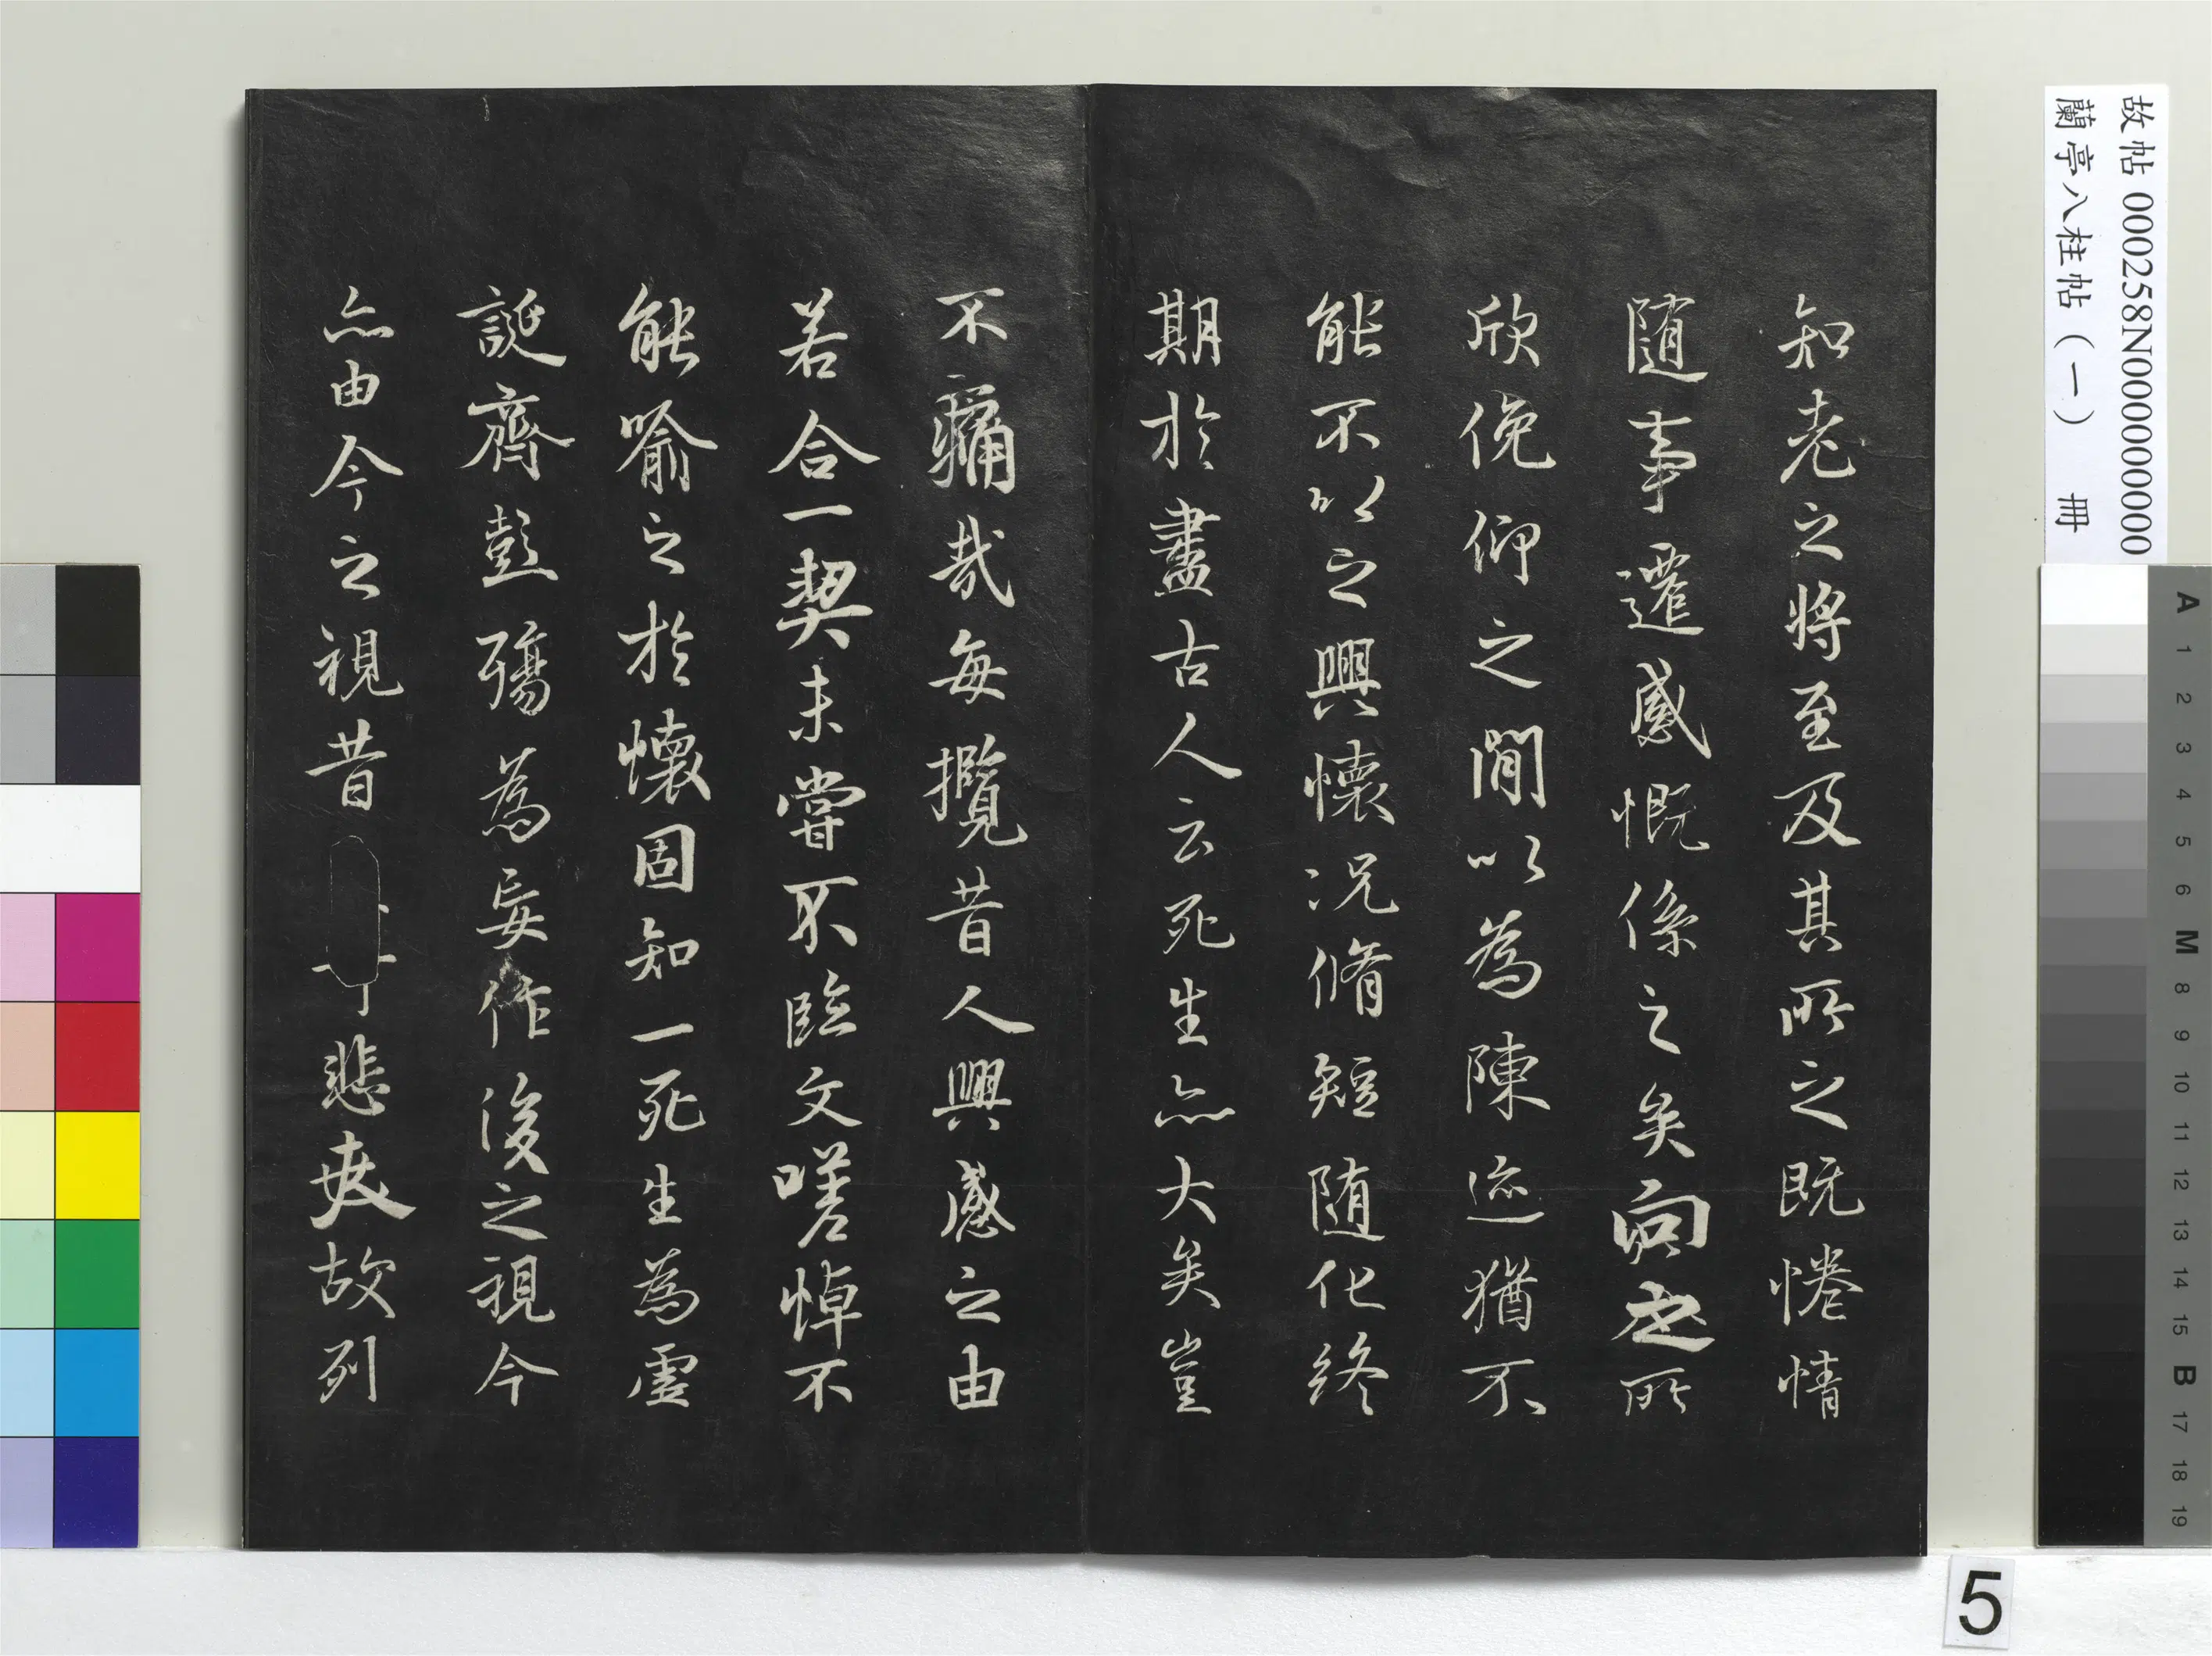 故帖 000258N000000000
蘭亭八柱帖（一） 冊
知老之將至及其所之既惓情
随事遷感慨係之矣向之所
欣俛仰之閒以為陳迹猶不
能不以之興懷况脩短随化終
期於盡古人云死生亦大矣豈
不痛哉每攬昔人興感之由
若合一契未嘗不臨文嗟悼不
能喻之於懷固知一死生為虛
誕齊彭殤為妄作後之視今
亦由今之視昔悲夫故列
A 1 2 3 4 5 6 M 8 9 10 11 12 13 14 15 B 17 18 19
5